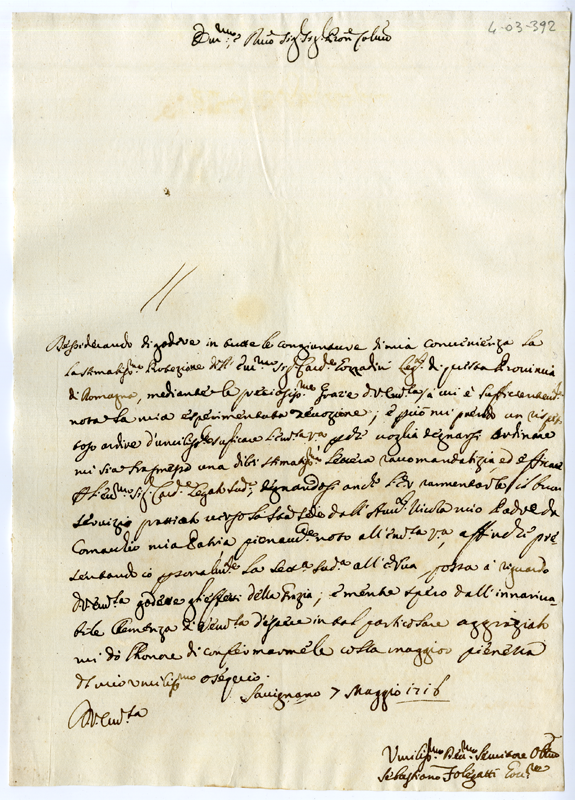 4-03-392
Em.mo Rmo Sig.r Sig.r Pron Colmo
Desiderando di godere in tutte le congiunture di mia convenienza la
stimatiss.ma Protezione dell' Em.mo Sig.r Card.e Gozzadini Leg.to di questa Provincia
di Romagna, mediante le preciosiss.me Grazie di V. Em.za, a cui è sufficientem.te
nota la mia esperimentata devozione; e però mi prendo un rispet-
toso ardire d'umiliss.te suplicare l'Em.za V.a
mi sia trasmesso una di lei stimatiss.ma lettera racomandatizia, ed efficace
all' Em.mo Sig.r Card.e Legato sud.o; degnandosi anche
servizio prestato verso la S.ta Sede dall' Nicola mio Padre da
mia Patria, pienam.te noto all' Em.za V.a, affinché pre-
sentando io personalm.te la lettera sud.a all' possa a riguardo
di V. Em.za godere gli effetti della Grazia; e mentre spero dall' innariva-
bile Clemenza di V. Em.za d'essere in tal particolare aggraziato
mi dò l'honore di confermarmele colla maggior pienezza
del mio umiliss.mo ossequio.
Savignano 7 Maggio 1716
Di V. Em.za
Umiliss.mo Dev.mo Servitore Obl.mo
Sebastiano Folegatti